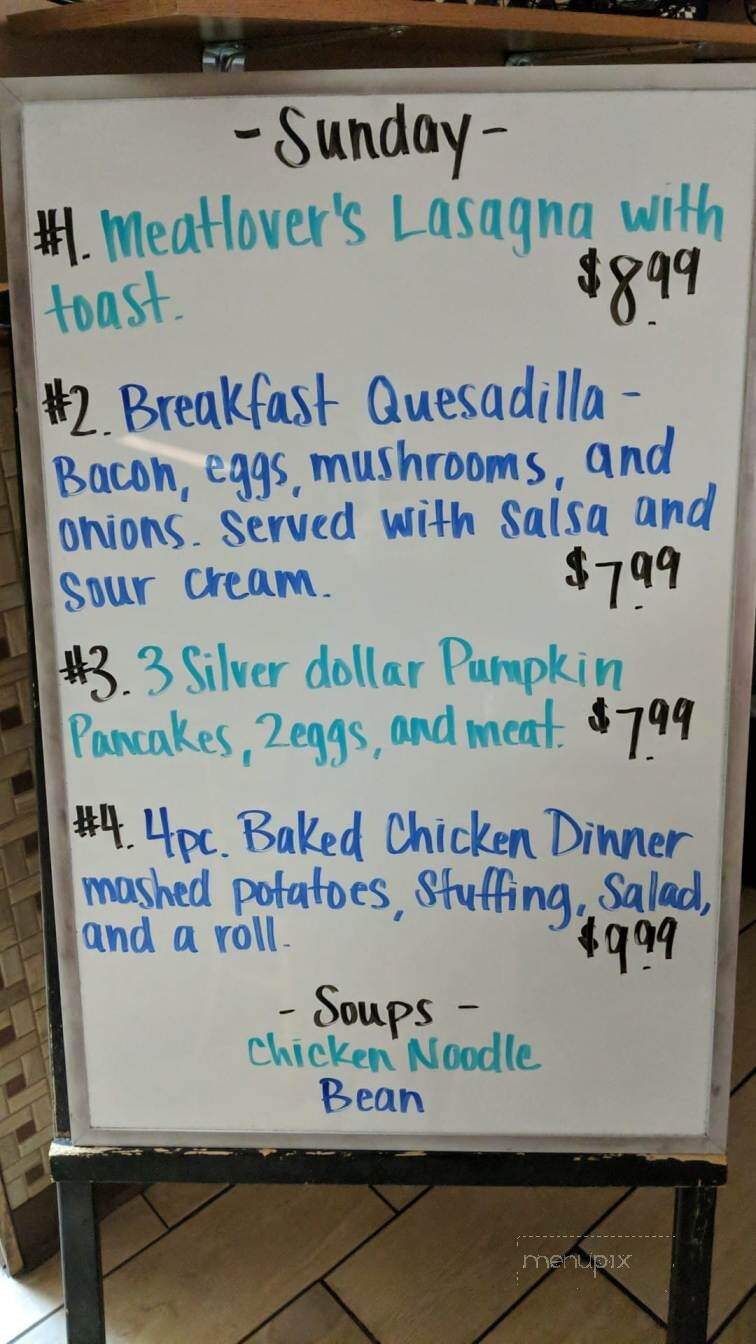 - Sunday -
#1. Meatlover's Lasagna with
toast. $8.99
#2. Breakfast Quesadilla -
Bacon, eggs, mushrooms, and
onions. Served with salsa and
sour cream. $7.99
#3. 3 Silver dollar Pumpkin
Pancakes, 2eggs, and meat. $7.99
#4. 4pc. Baked Chicken Dinner
mashed potatoes, Stuffing, Salad,
and a roll. $9.99
- Soups -
Chicken Noodle
Bean
menupix